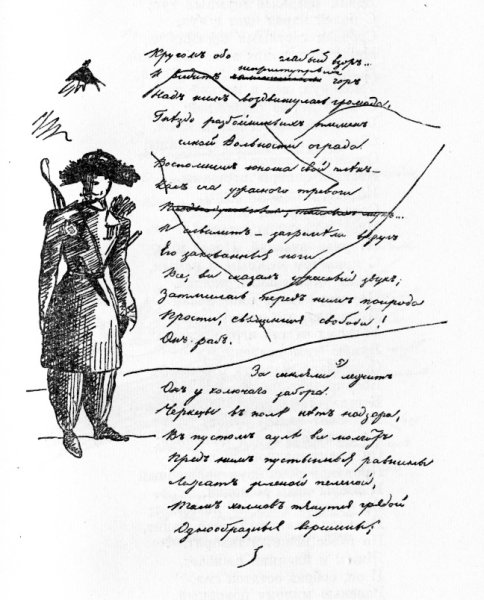 Кругомъ обо слабый взоръ...
И видитъ неприступныхъ горъ
Надъ нимъ воздвигнулась громада,
Гнѣздо разбойничьихъ племенъ
Вольности ограда
Вспомнилъ юноша свой плѣнъ—
Какъ сна ужаснаго тревоги
И слышитъ — загремѣли вдругъ
Его закованныя ноги
Все, все сказалъ ужасный звукъ;
Затмилась передъ нимъ природа
Прости, священная свобода!
Онъ рабъ.
За саклями лежитъ
Онъ у колючаго забора.
Черкесы въ полѣ нѣтъ надзора,
Въ пустомъ аулѣ все молчитъ
Предъ нимъ пустынныя равнины
Лежатъ зеленой пеленой,
Тамъ холмовъ тянутся грядой
Однообразныя вершины;